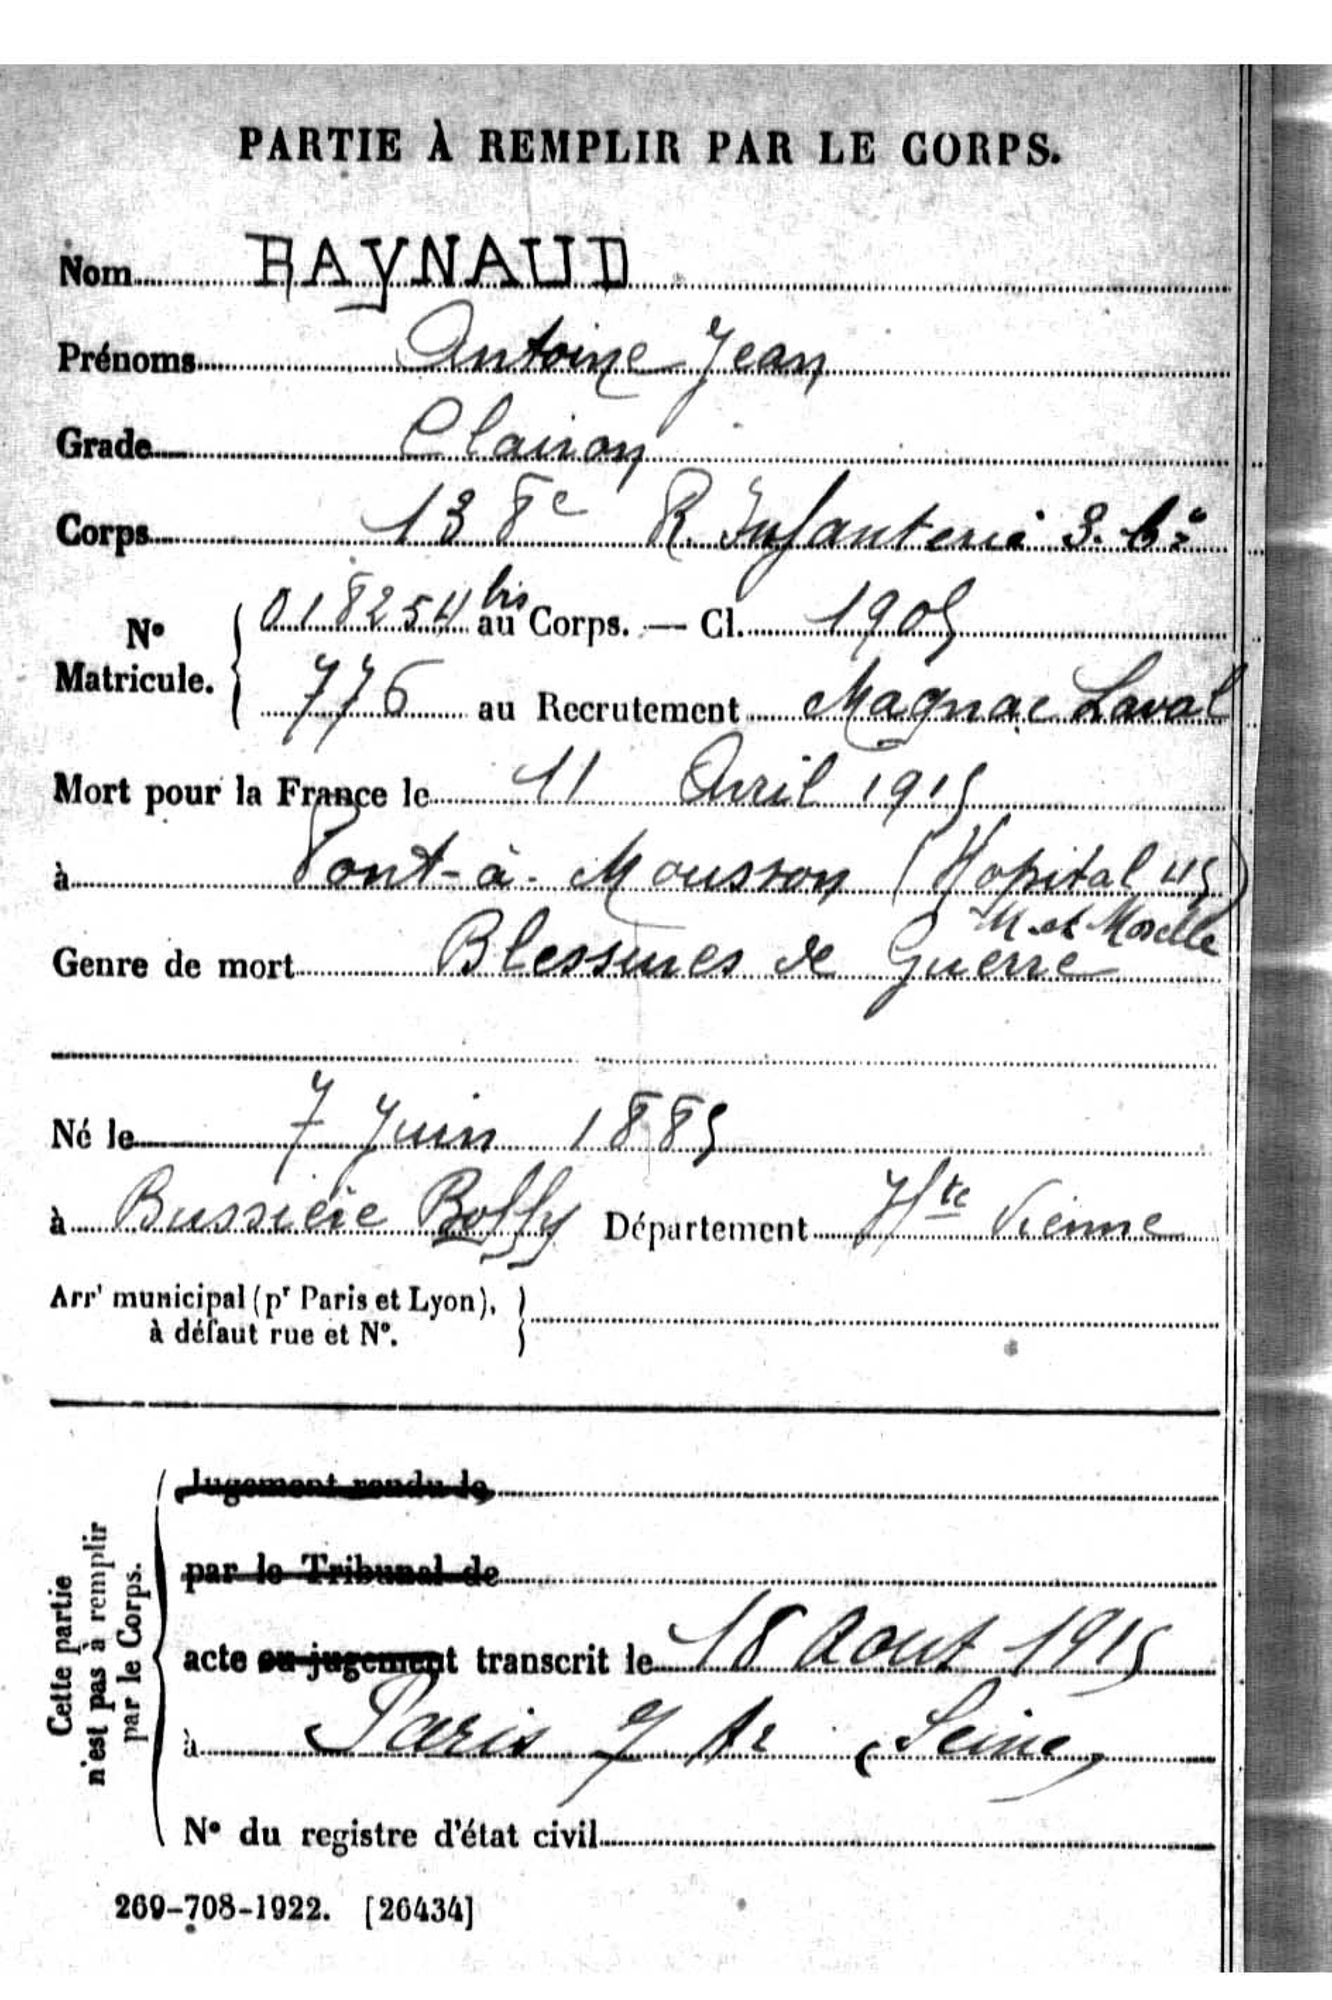 PARTIE À REMPLIR PAR LE CORPS.
Nom RAYNAUD
Prénoms Antoine Jean
Grade Clairon
Corps 138e R. Infanterie 3. Cie
N° Matricule. 018254 bis au Corps. — Cl. 1905
776 au Recrutement Magnac Laval
Mort pour la France le 11 Avril 1915
à Pont-à-Mousson (Hopital 45)
M. et Moselle
Genre de mort Blessures de Guerre
Né le 7 Juin 1885
à Bussière Boffy Département Hte Vienne
Arrt municipal (pr Paris et Lyon),
à défaut rue et N°.
Cette partie
n'est pas à remplir
par le Corps.
Jugement rendu le
par le Tribunal de
acte ou jugement transcrit le 18 Aout 1915
à Paris 7 Ar (Seine)
N° du registre d'état civil
269-708-1922. [26434]